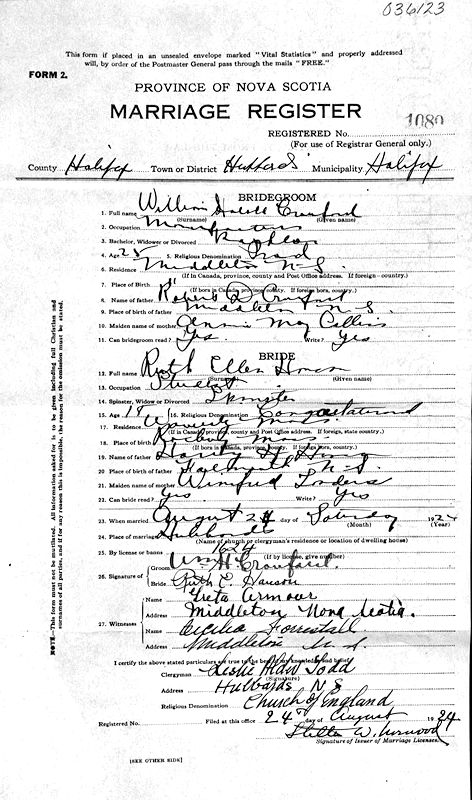 036123
This form if placed in an unsealed envelope marked "Vital Statistics" and properly addressed
will, by order of the Postmaster General pass through the mails "FREE."
FORM 2.
PROVINCE OF NOVA SCOTIA
MARRIAGE REGISTER
REGISTERED No. 1080
(For use of Registrar General only.)
County Halifax Town or District Hubbards Municipality Halifax
BRIDEGROOM
1. Full name William Crawford
(Surname) (Given name)
2. Occupation
3. Bachelor, Widower or Divorced Bachelor
4. Age 25 5. Religious Denomination
6. Residence Middleton N.S.
(If in Canada, province, county and Post Office address. If foreign - country.)
7. Place of Birth "
(If born in Canada, province, county. If foreign born, country.)
8. Name of father Robert D. Crawford
9. Place of birth of father Middleton N.S.
10. Maiden name of mother Annie May Collins
11. Can bridegroom read? Yes Write? Yes
BRIDE
12. Full name Ruth Ellen
(Surname) (Given name)
13. Occupation Student
14. Spinster, Widow or Divorced Spinster
15. Age 19 16. Religious Denomination Congregational
17. Residence Mass.
(If in Canada, province, county and Post Office address. If foreign, state country.)
18. Place of birth Roxbury Mass.
(If born in Canada, province, county. If foreign born, country.)
19. Name of father
20. Place of birth of father N.S.
21. Maiden name of mother Winifred
22. Can bride read? Yes Write? Yes
23. When married August 24 day of Saturday 1924
(Month) (Year)
24. Place of marriage Hubbards
(Name of church or clergyman's residence or location of dwelling house)
25. By license or banns 1624
(If by license, give number)
26. Signature of: Groom Wm H. Crawford.
Bride Ruth E. Hanson
27. Witnesses Name Greta Armour
Address Middleton Nova Scotia.
Name Cecilia Forrestall
Address Middleton N.S.
I certify the above stated particulars are true to the best of my knowledge and belief.
Clergyman Leslie Alder Todd
(Signature)
Address Hubbards N S
Religious Denomination Church of England
Filed at this office 24 day of August 1924
Registered No.
Signature of Issuer of Marriage Licenses.
[SEE OTHER SIDE]
NOTE—This form must not be mutilated. All information asked for is to be given including full Christian and
surnames of all parties, and if for any reason this is impossible, the reason for the omission must be stated.